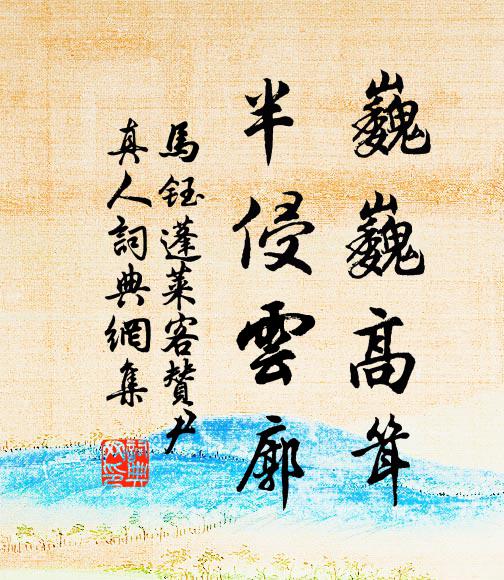 巍巍高聳
半侵雲廓
馬鈺蓬萊客贊尹
真人詞典網集